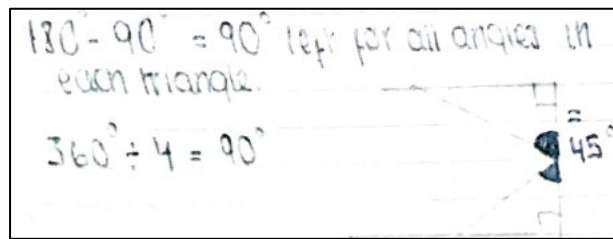 180° - 90° = 90° left for all angles in
each triangle.
360° ÷ 4 = 90°
= 45°